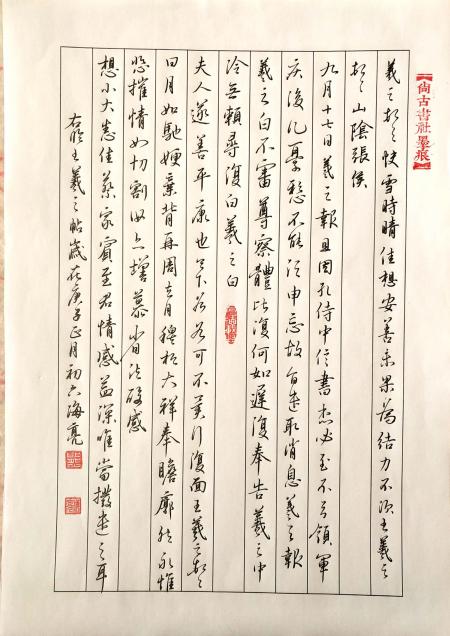 尚古書社墨痕
羲之頓首快雪時晴佳想安善未果為結力不次王羲之
頓首山陰張侯
九月十七日羲之報且因孔侍中信書想必至不知領軍
疾後問憂懸不能須臾忘故旨遣取消息羲之報
羲之白不審尊體比復何如遲復奉告羲之中
冷無賴尋復白羲之白
夫人遂善平康也足下各可不
日月如馳嫂棄背再周去月穆松大祥奉瞻廓然永惟
悲摧情如切割
想小大悉佳蔡家賓至君情感益深唯當撥遣之耳
右臨王羲之帖歲在庚子正月初六海亮